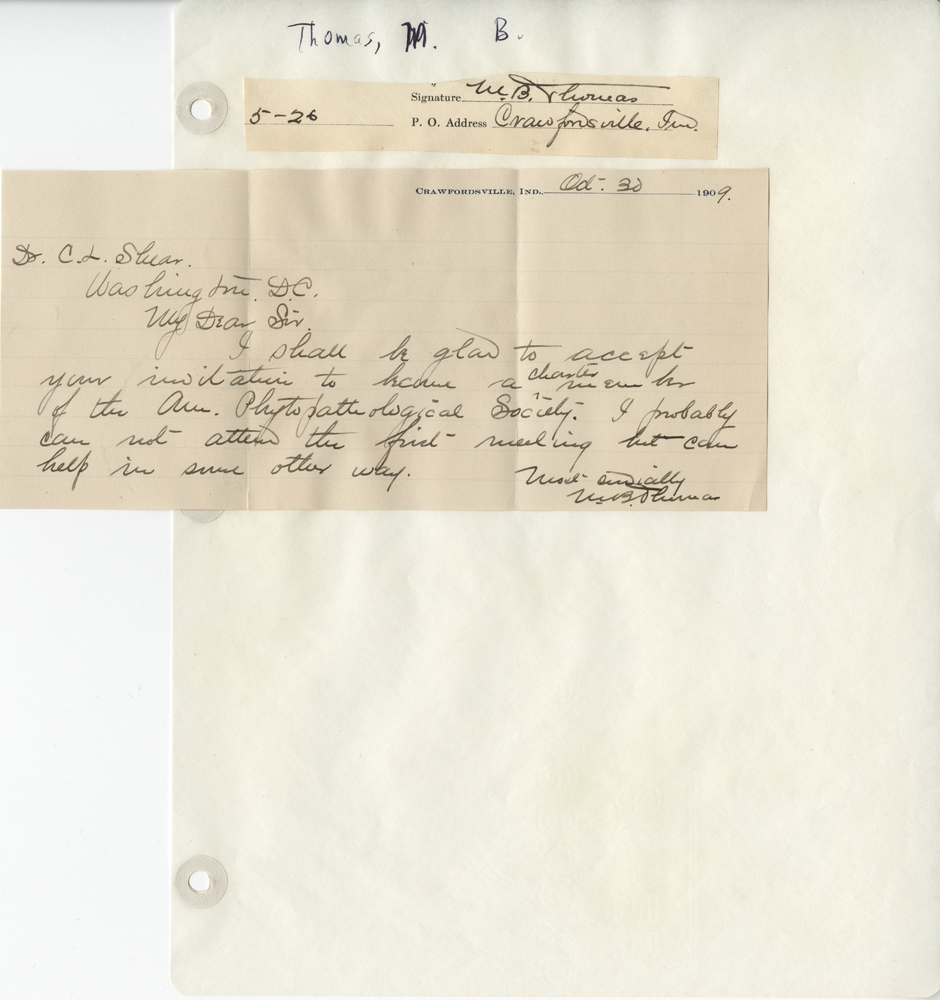 Thomas, M. B.
Signature M. B. Thomas
5-26
P. O. Address Crawfordsville, Ind.
Crawfordsville, Ind., Oct. 30 1909.
Dr. C. L. Shear.
Washington. D.C.
My Dear Sir.
I shall be glad to accept
your invitation to become a charter member
of the Am. Phytopathological Society. I probably
can not attend the first meeting but can
help in some other way.
Most cordially
M. B. Thomas